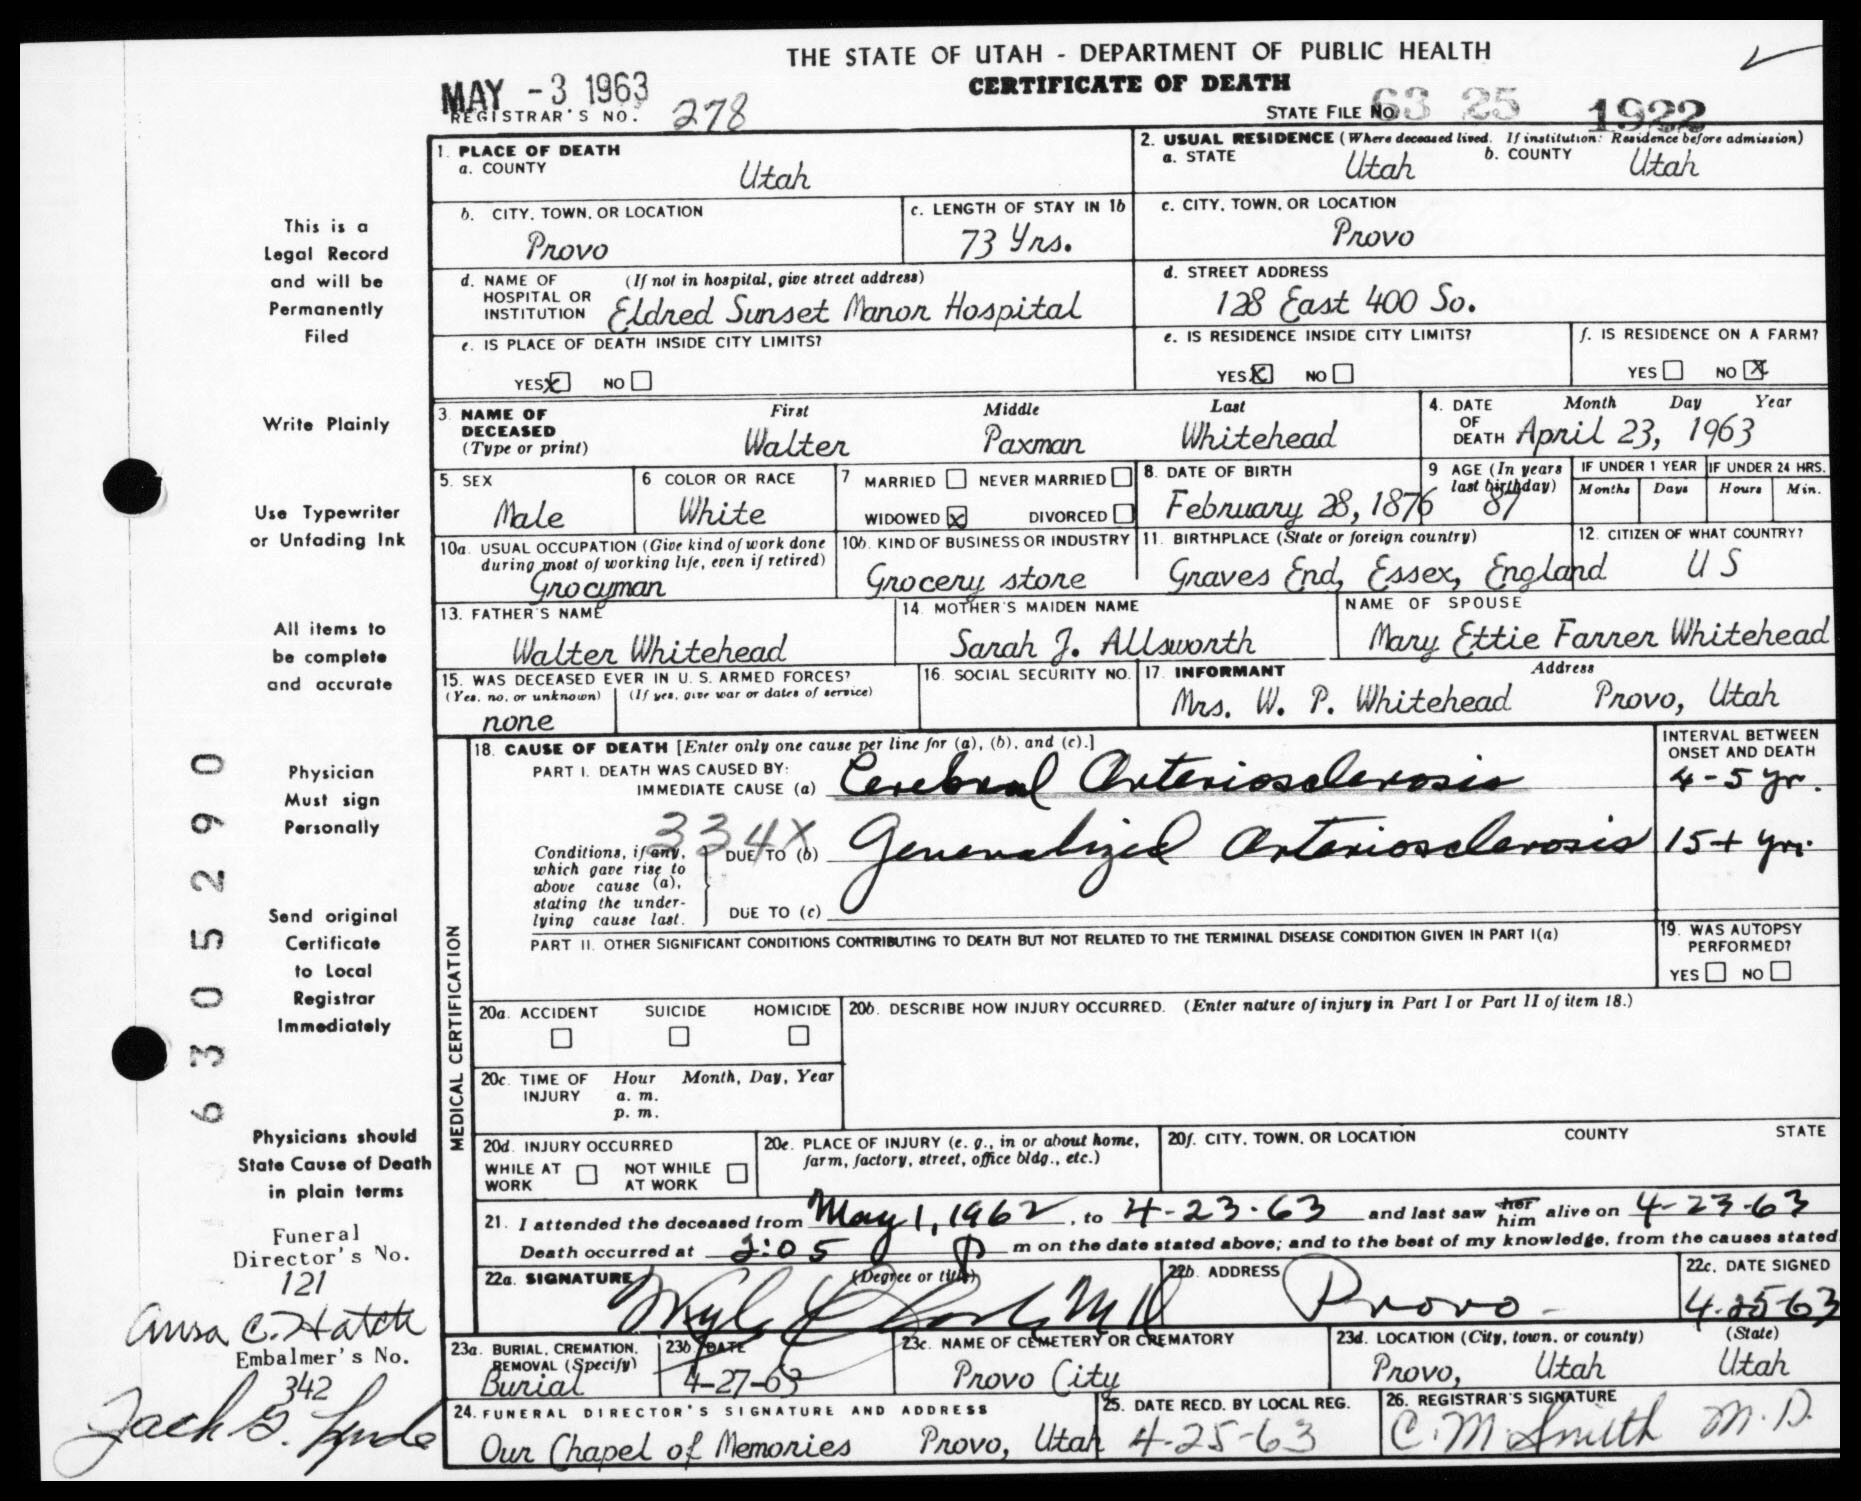 THE STATE OF UTAH - DEPARTMENT OF PUBLIC HEALTH
CERTIFICATE OF DEATH
MAY -3 1963
REGISTRAR'S NO. 278
STATE FILE NO. 63 25 1922
1. PLACE OF DEATH
a. COUNTY Utah
2. USUAL RESIDENCE (Where deceased lived. If institution: Residence before admission)
a. STATE Utah b. COUNTY Utah
b. CITY, TOWN, OR LOCATION Provo
c. LENGTH OF STAY IN 1b 73 Yrs.
c. CITY, TOWN, OR LOCATION Provo
d. NAME OF HOSPITAL OR INSTITUTION (If not in hospital, give street address) Eldred Sunset Manor Hospital
d. STREET ADDRESS 128 East 400 So.
e. IS PLACE OF DEATH INSIDE CITY LIMITS?
YES X NO
e. IS RESIDENCE INSIDE CITY LIMITS?
YES X NO
f. IS RESIDENCE ON A FARM?
YES NO X
3. NAME OF DECEASED (Type or print)
First Middle Last
Walter Paxman Whitehead
4. DATE OF DEATH Month Day Year
April 23, 1963
5. SEX Male
6 COLOR OR RACE White
7 MARRIED NEVER MARRIED
WIDOWED X DIVORCED
8. DATE OF BIRTH February 28, 1876
9 AGE (In years last birthday) 87
IF UNDER 1 YEAR Months Days
IF UNDER 24 HRS. Hours Min.
10a. USUAL OCCUPATION (Give kind of work done during most of working life, even if retired)
Grocyman
10b. KIND OF BUSINESS OR INDUSTRY
Grocery store
11. BIRTHPLACE (State or foreign country)
Graves End, Essex, England
12. CITIZEN OF WHAT COUNTRY?
U S
13. FATHER'S NAME
Walter Whitehead
14. MOTHER'S MAIDEN NAME
Sarah J. Allsworth
NAME OF SPOUSE
Mary Ettie Farrer Whitehead
15. WAS DECEASED EVER IN U. S. ARMED FORCES?
(Yes, no, or unknown) (If yes, give war or dates of service)
none
16. SOCIAL SECURITY NO.
17. INFORMANT Address
Mrs. W. P. Whitehead Provo, Utah
MEDICAL CERTIFICATION
18. CAUSE OF DEATH [Enter only one cause per line for (a), (b), and (c).]
INTERVAL BETWEEN ONSET AND DEATH
PART I. DEATH WAS CAUSED BY:
IMMEDIATE CAUSE (a) Cerebral Arteriosclerosis 4-5 yr.
334X
Conditions, if any, which gave rise to above cause (a), stating the underlying cause last.
DUE TO (b) Generalized Arteriosclerosis 15+ yrs.
DUE TO (c)
PART II. OTHER SIGNIFICANT CONDITIONS CONTRIBUTING TO DEATH BUT NOT RELATED TO THE TERMINAL DISEASE CONDITION GIVEN IN PART I(a)
19. WAS AUTOPSY PERFORMED?
YES NO
20a. ACCIDENT SUICIDE HOMICIDE
20b. DESCRIBE HOW INJURY OCCURRED. (Enter nature of injury in Part I or Part II of item 18.)
20c. TIME OF INJURY Hour Month, Day, Year
a. m.
p. m.
20d. INJURY OCCURRED
WHILE AT WORK NOT WHILE AT WORK
20e. PLACE OF INJURY (e. g., in or about home, farm, factory, street, office bldg., etc.)
20f. CITY, TOWN, OR LOCATION COUNTY STATE
21. I attended the deceased from May 1, 1962, to 4-23-63 and last saw her him alive on 4-23-63
Death occurred at 2:05 P m on the date stated above; and to the best of my knowledge, from the causes stated
22a. SIGNATURE (Degree or title) M D
22b. ADDRESS Provo -
22c. DATE SIGNED 4-25-63
23a. BURIAL, CREMATION, REMOVAL (Specify) Burial
23b. DATE 4-27-63
23c. NAME OF CEMETERY OR CREMATORY Provo City
23d. LOCATION (City, town, or county) (State)
Provo, Utah Utah
24. FUNERAL DIRECTOR'S SIGNATURE AND ADDRESS
Our Chapel of Memories Provo, Utah
25. DATE RECD. BY LOCAL REG.
4-25-63
26. REGISTRAR'S SIGNATURE
C. M Smith M. D.
This is a
Legal Record
and will be
Permanently
Filed
Write Plainly
Use Typewriter
or Unfading Ink
All items to
be complete
and accurate
Physician
Must sign
Personally
Send original
Certificate
to Local
Registrar
Immediately
Physicians should
State Cause of Death
in plain terms
Funeral
Director's No.
121
C. Hatch
Embalmer's No.
342
Jack G.
6 3 0 5 2 9 0